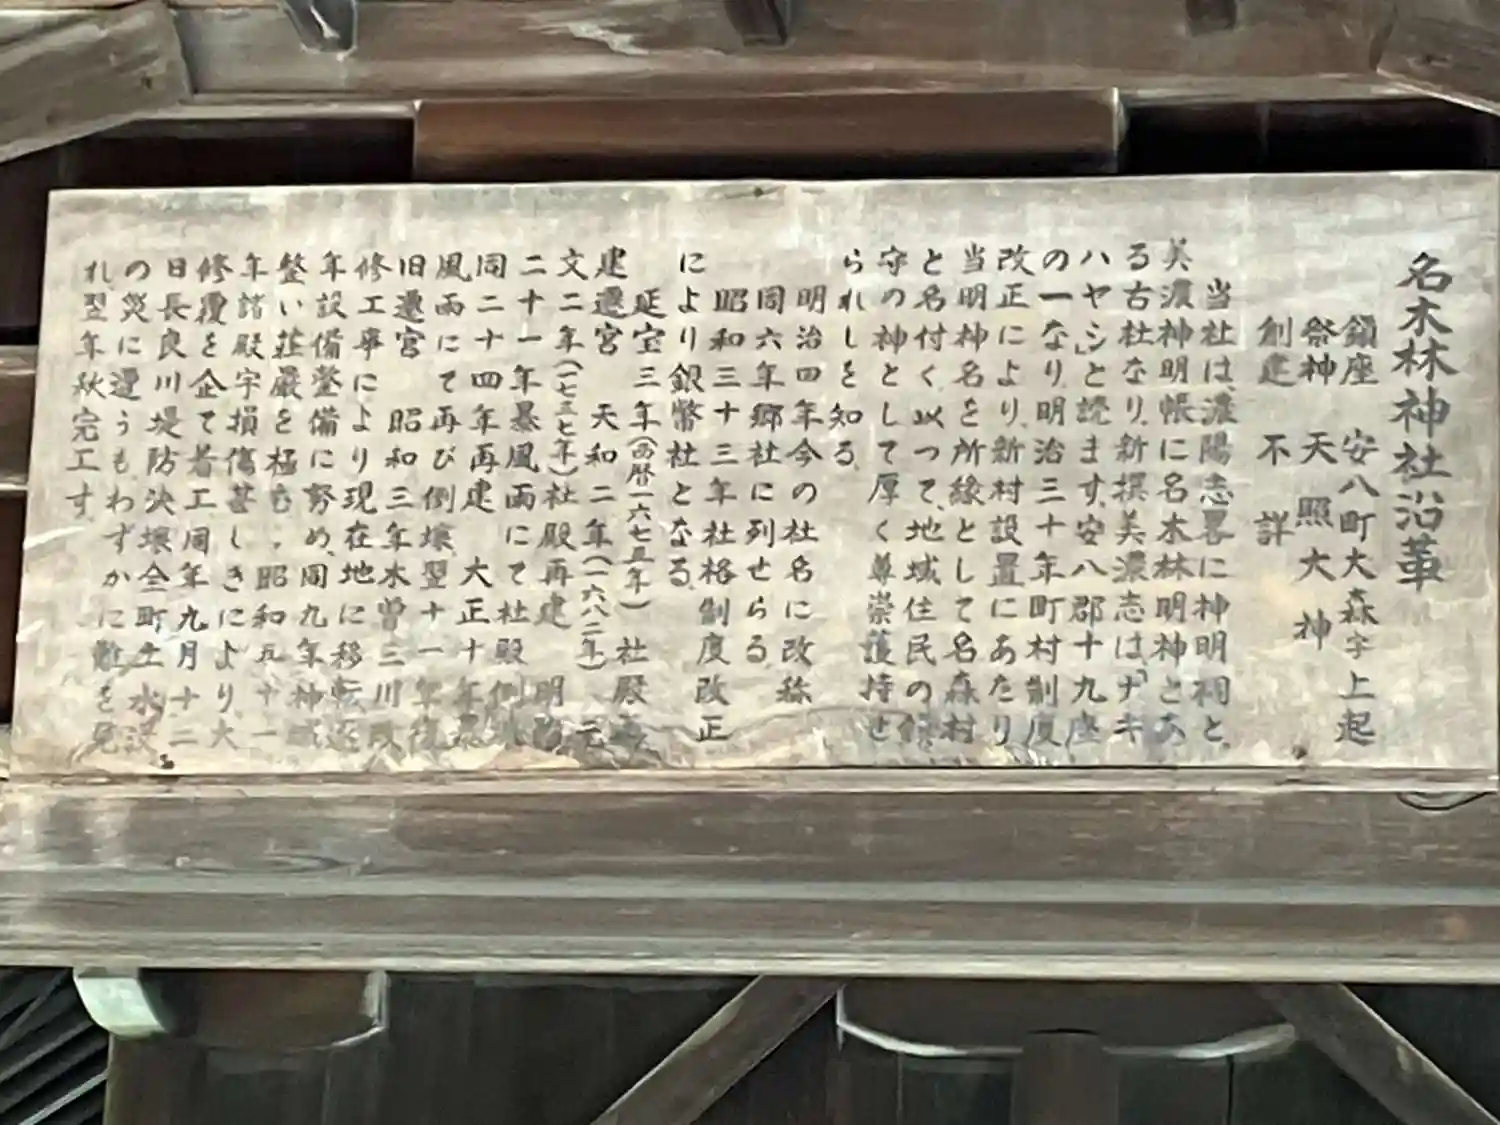 名木林神社沿革
鎮座　安八町大森字上起
祭神　天照大神
創建　不詳
当社は、濃陽志畧に神明祠と、
美濃神明帳に名木林明神とあ
る古社なり、新撰美濃志は「ナキ
ハヤシ」と読ます、安八郡十九座
の一なり、明治三十年町村制度
改正により、新村設置にあたり
当明神名を所縁として名森村
と名付く、以つて、地域住民の
守の神として厚く尊崇護持せ
られしを知る。
明治四年今の社名に改称
同六年郷社に列せらる
昭和三十三年社格制度改正
により銀幣社となる。
延宝三年(西暦一六七五年)社殿
建遷宮　天和二年(一六八二年)元
文二年(一七三七年)社殿再建　明治
二十一年暴風雨にて社殿倒壊
同二十四年再建　大正十年暴
風雨にて再び倒壊翌十一年復
旧遷宮　昭和三年木曽三川改
修工事により現在地に移転逐
年設備整備に努め、同九年神域
整い荘厳を極む。昭和五十一
年諸殿宇損傷甚しきにより、大
修覆を企て着工同年九月十二
日長良川堤防決壊全町土水没
の災に遭うもわずかに難を免
れ翌年秋完工す